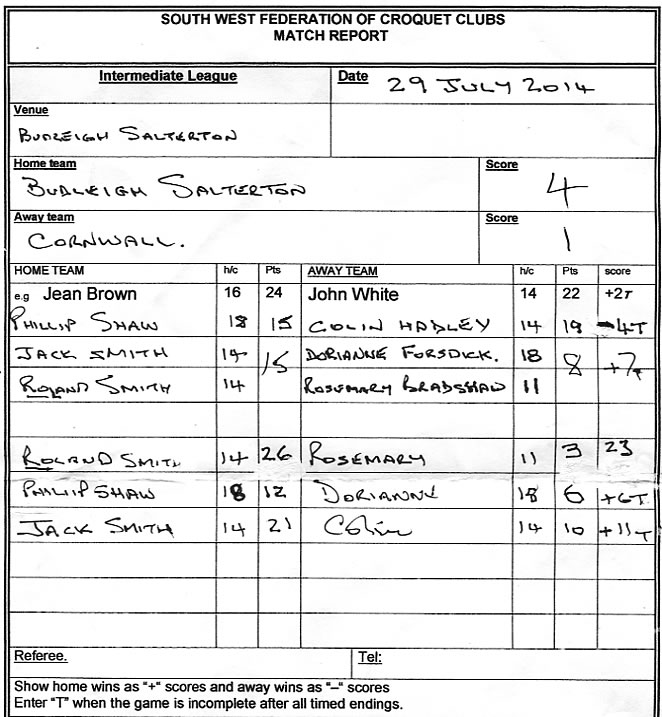 SOUTH WEST FEDERATION OF CROQUET CLUBS
MATCH REPORT
Intermediate League Date 29 JULY 2014
Venue
BUDLEIGH SALTERTON
Home team Score
BUDLEIGH SALTERTON 4
Away team Score
CORNWALL. 1
HOME TEAM h/c Pts AWAY TEAM h/c Pts score
e.g Jean Brown 16 24 John White 14 22 +2T
PHILLIP SHAW 18 15 COLIN HADLEY 14 19 -4T
JACK SMITH 14 15 DORIANNE FORSDICK. 18 8 +7T
ROLAND SMITH 14 ROSEMARY BRADSHAW 11
ROLAND SMITH 14 26 ROSEMARY 11 3 23
PHILIP SHAW 18 12 DORIANNE 18 6 +6T
JACK SMITH 14 21 Colin 14 10 +11T
Referee. Tel:
Show home wins as "+" scores and away wins as "–" scores
Enter "T" when the game is incomplete after all timed endings.